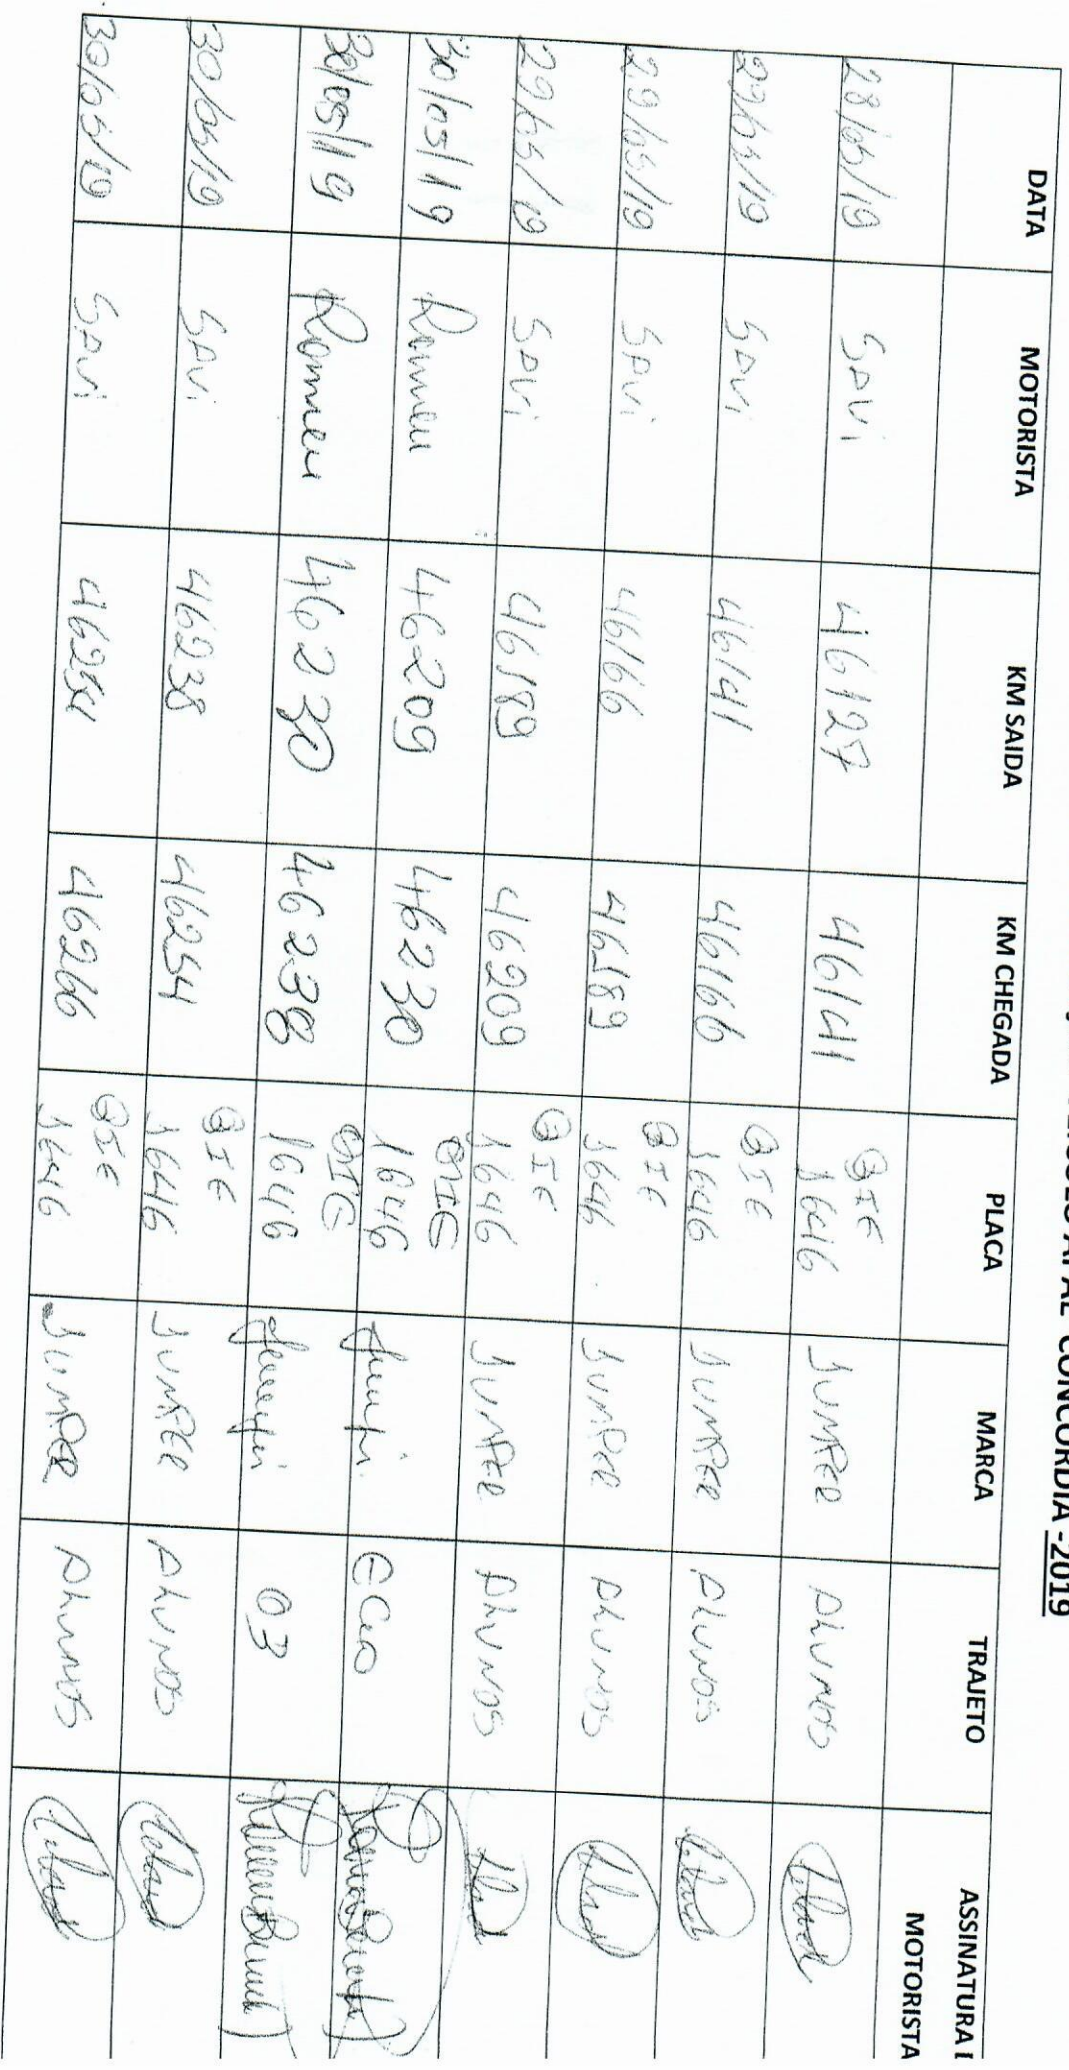 VEICULOS APAE CONCORDIA - 2019
DATA MOTORISTA KM SAIDA KM CHEGADA PLACA MARCA TRAJETO ASSINATURA
MOTORISTA
28/05/19 SAVI 46127 46141 QIE 1646 JUMPER ALUNOS
29/05/19 SAVI 46141 46166 QIE 1646 JUMPER ALUNOS
29/05/19 SAVI 46166 46189 QIE 1646 JUMPER ALUNOS
29/05/19 SAVI 46189 46209 QIE 1646 JUMPER ALUNOS
30/05/19 Romeu 46209 46230 QIE 1646
30/05/19 Romeu 46230 46238 QIE 1646 03
30/05/19 SAVI 46238 46254 QIE 1646 JUMPER ALUNOS
30/05/19 SAVI 46254 46266 QIE 1646 JUMPER ALUNOS